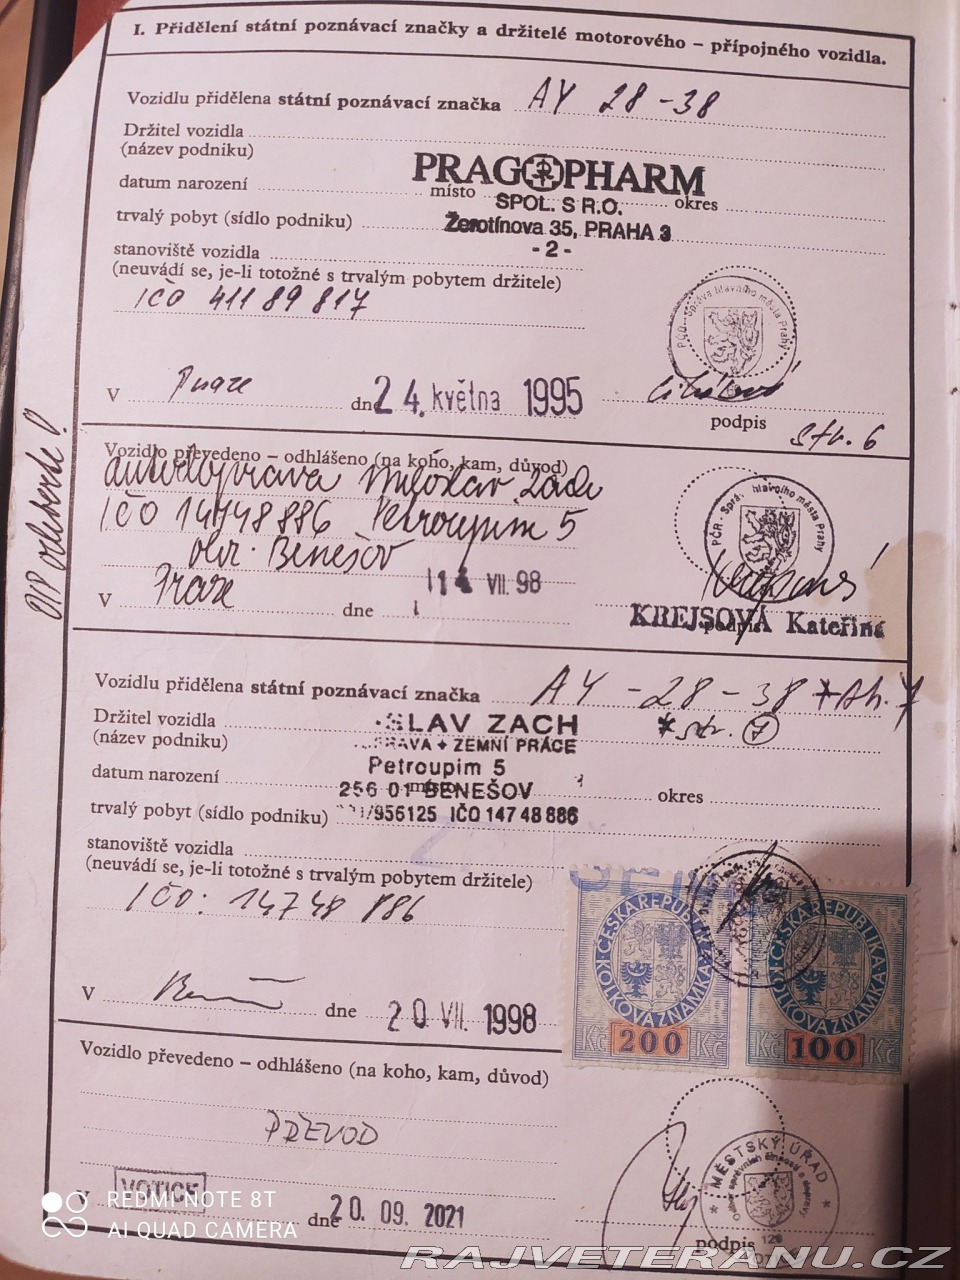 I. Přidělení státní poznávací značky a držitelé motorového – přípojného vozidla.
Vozidlu přidělena státní poznávací značka AY 28-38
Držitel vozidla
(název podniku)
PRAGOPHARM
datum narození místo okres
SPOL. S R.O.
trvalý pobyt (sídlo podniku) Žerotínova 35, PRAHA 3
- 2 -
stanoviště vozidla
(neuvádí se, je-li totožné s trvalým pobytem držitele)
IČO 411 89 817
PČR - Správa hlavního města Prahy
V Praze dne 24. května 1995
podpis
str. 6
Vozidlo převedeno – odhlášeno (na koho, kam, důvod)
autodoprava Miloslav Zach
IČO 14748886 Petroupim 5
okr. Benešov
PČR - Správa hlavního města Prahy
V Praze dne 14 VII. 98
KREJSOVÁ Kateřina
podpis
Vozidlu přidělena státní poznávací značka AY -28-38 *str. 7
Držitel vozidla SLAV ZACH *str. 7
(název podniku) RAVA + ZEMNÍ PRÁCE
Petroupim 5
datum narození místo okres
256 01 BENEŠOV
trvalý pobyt (sídlo podniku) /956125 IČO 147 48 886
stanoviště vozidla
(neuvádí se, je-li totožné s trvalým pobytem držitele)
IČO: 14748 886
ČESKÁ REPUBLIKA KOLKOVÁ ZNÁMKA
Kč 200 Kč
ČESKÁ REPUBLIKA KOLKOVÁ ZNÁMKA
Kč 100 Kč
V dne 20. VII. 1998
Vozidlo převedeno – odhlášeno (na koho, kam, důvod)
PŘEVOD
MĚSTSKÝ ÚŘAD
V VOTICE dne 20. 09. 2021
podpis
REDMI NOTE 8T
AI QUAD CAMERA
RAJVETERANU.CZ